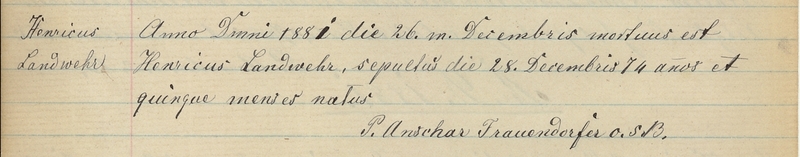 Henricus Anno Dmni 1881 die 26. m. Decembris mortuus est
Landwehr Henricus Landwehr, sepultus die 28. Decembris 74 años et
quinque menses natus
P. Anschar Frauendorfer O.S.B.